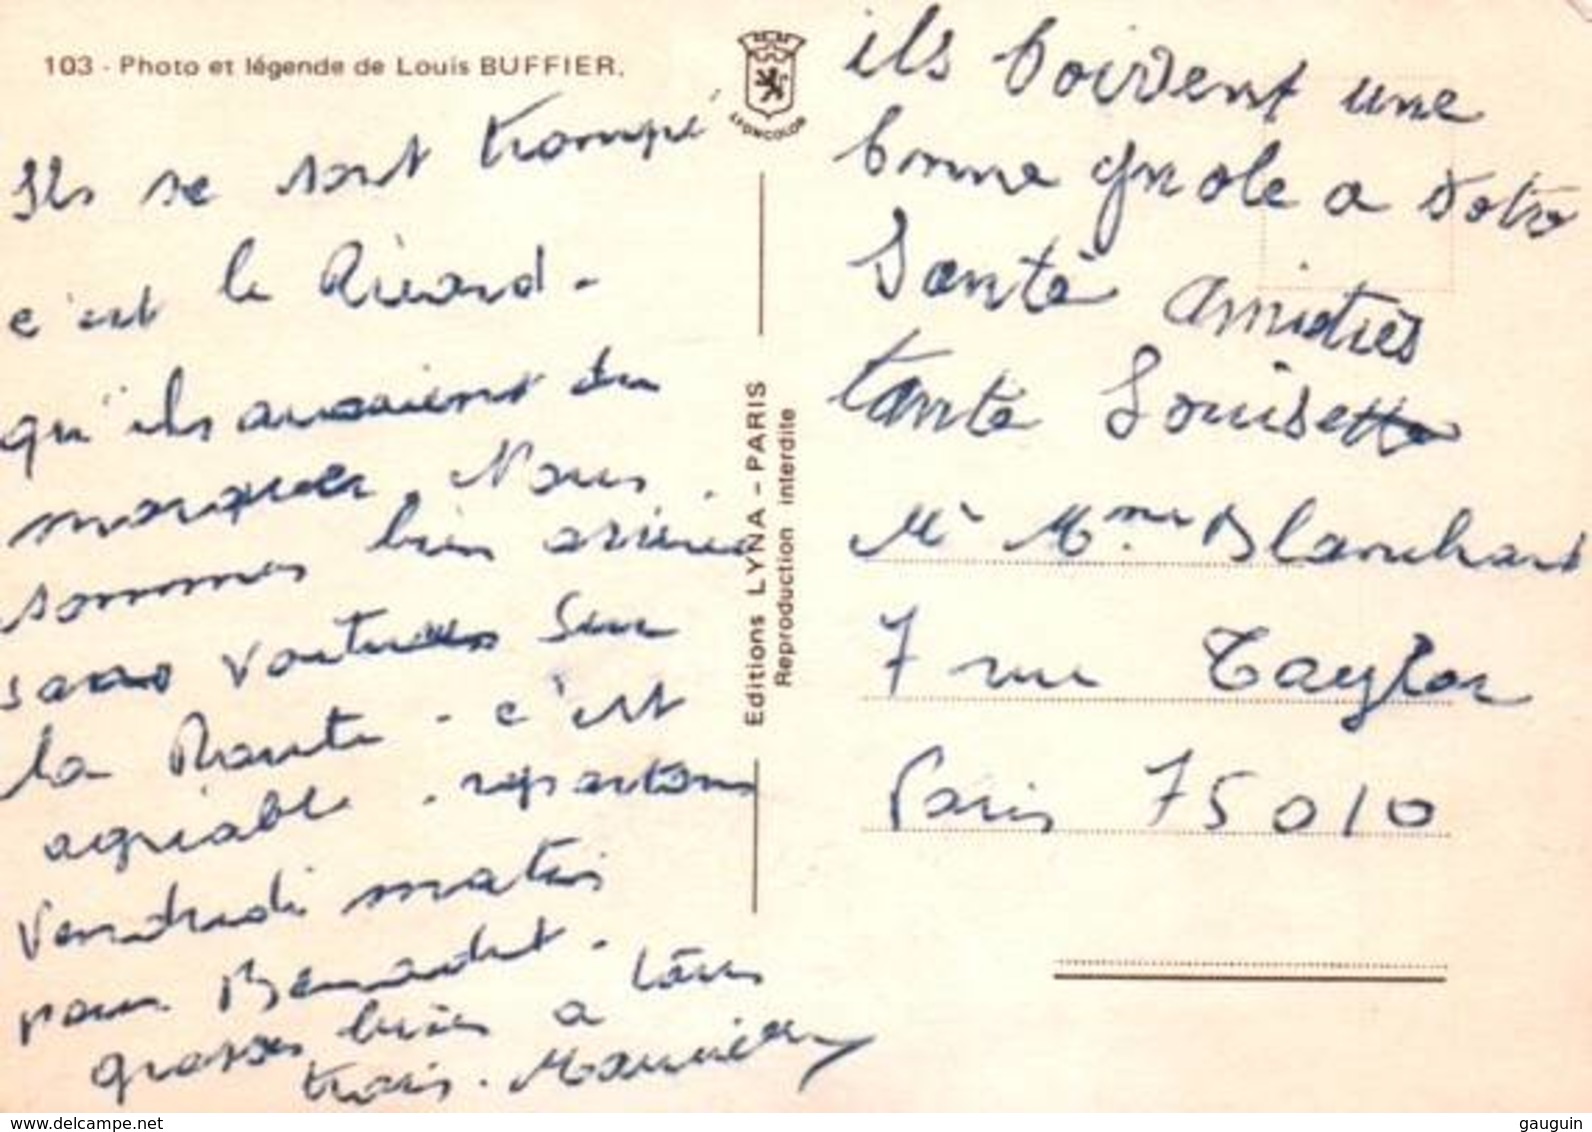 103 - Photo et légende de Louis BUFFIER.
LYONCOLOR
Ils se sont trompé
c'est le Ricard -
qu'ils auraient du
marquer. Nous
sommes bien arrivé
sans voitures sur
la Route - c'est
agréable. repartons
vendredi matin
pour
grosses bises a tous
trois.
Editions LYNA - PARIS
Reproduction interdite
ils boivent une
bonne gnole a votre
Santé amitiés
tante Louisette
Mr Mme Blanchard
7 rue Taylor
Paris 75010
www.delcampe.net
gauguin